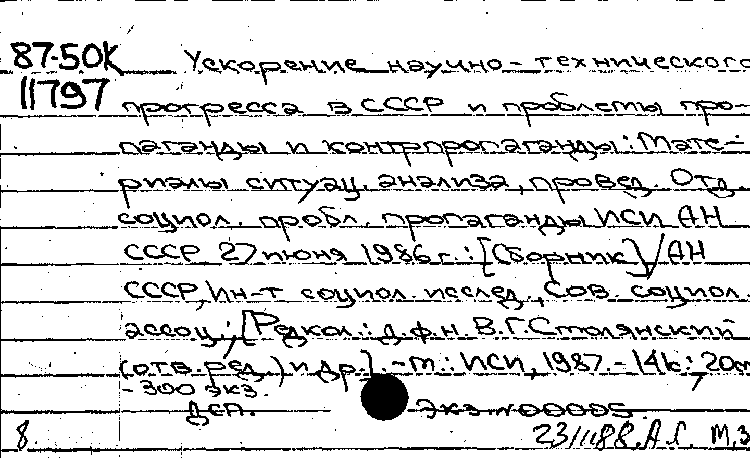 87-50К Ускорение научно-технического
11797 прогресса в СССР и проблемы про-
паганды и контрпропаганды: Мате-
риалы ситуац. анализа, провед. Отд.
социол. пробл. пропаганды ИСИ АН
СССР 27 июня 1986 г.: [Сборник] / АН
СССР, Ин-т социол. исслед., Сов. социол.
ассоц.; [Редкол.: д.ф.н. В.Г. Столянский
(отв. ред.) и др.]. - М.: ИСИ, 1987. - 14к.; 20см
- 300 экз.
ДСП. Экз. № 00005.
8. 23/